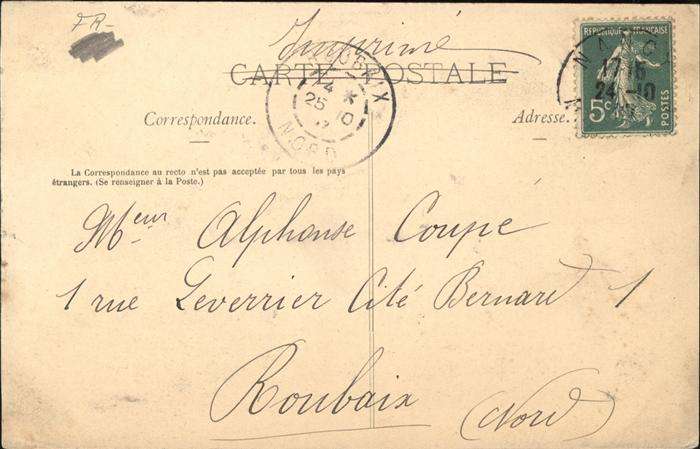 FR-
Imprimé
CARTE POSTALE
RÉPUBLIQUE FRANÇAISE
5c
POSTES
17 15
24 -10
ROUBAIX
25 10
NORD
Correspondance.
Adresse.
La Correspondance au recto n'est pas acceptée par tous les pays
étrangers. (Se renseigner à la Poste.)
Meur Alphonse Coupé
1 rue Leverrier Cité Bernard 1
Roubaix (Nord)